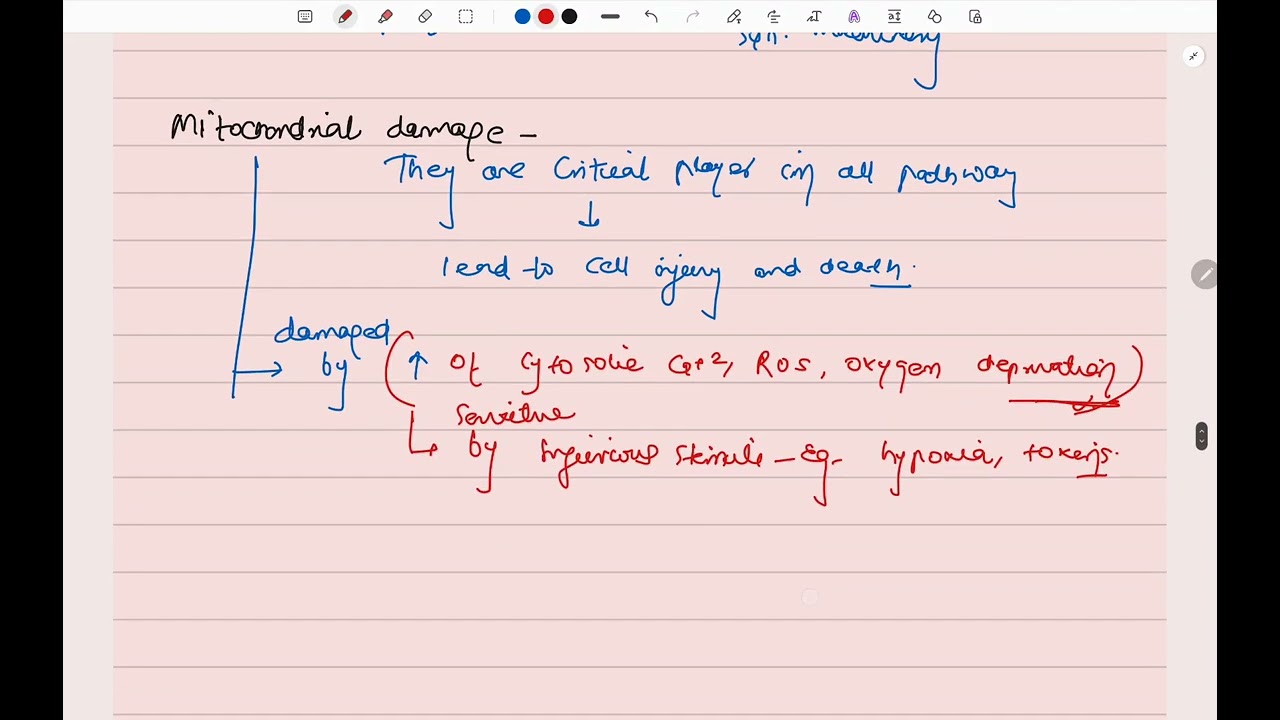 syn. machinery
Mitocrondrial damage -
They are Critical player in all pathway
↓
lead to cell injury and death.
damaged
by ( ↑ of Cytosolic Ca+2, ROS, oxygen deprivation )
Sensitive
↳ by Injurious Stimuli - Eg - hypoxia, toxens.